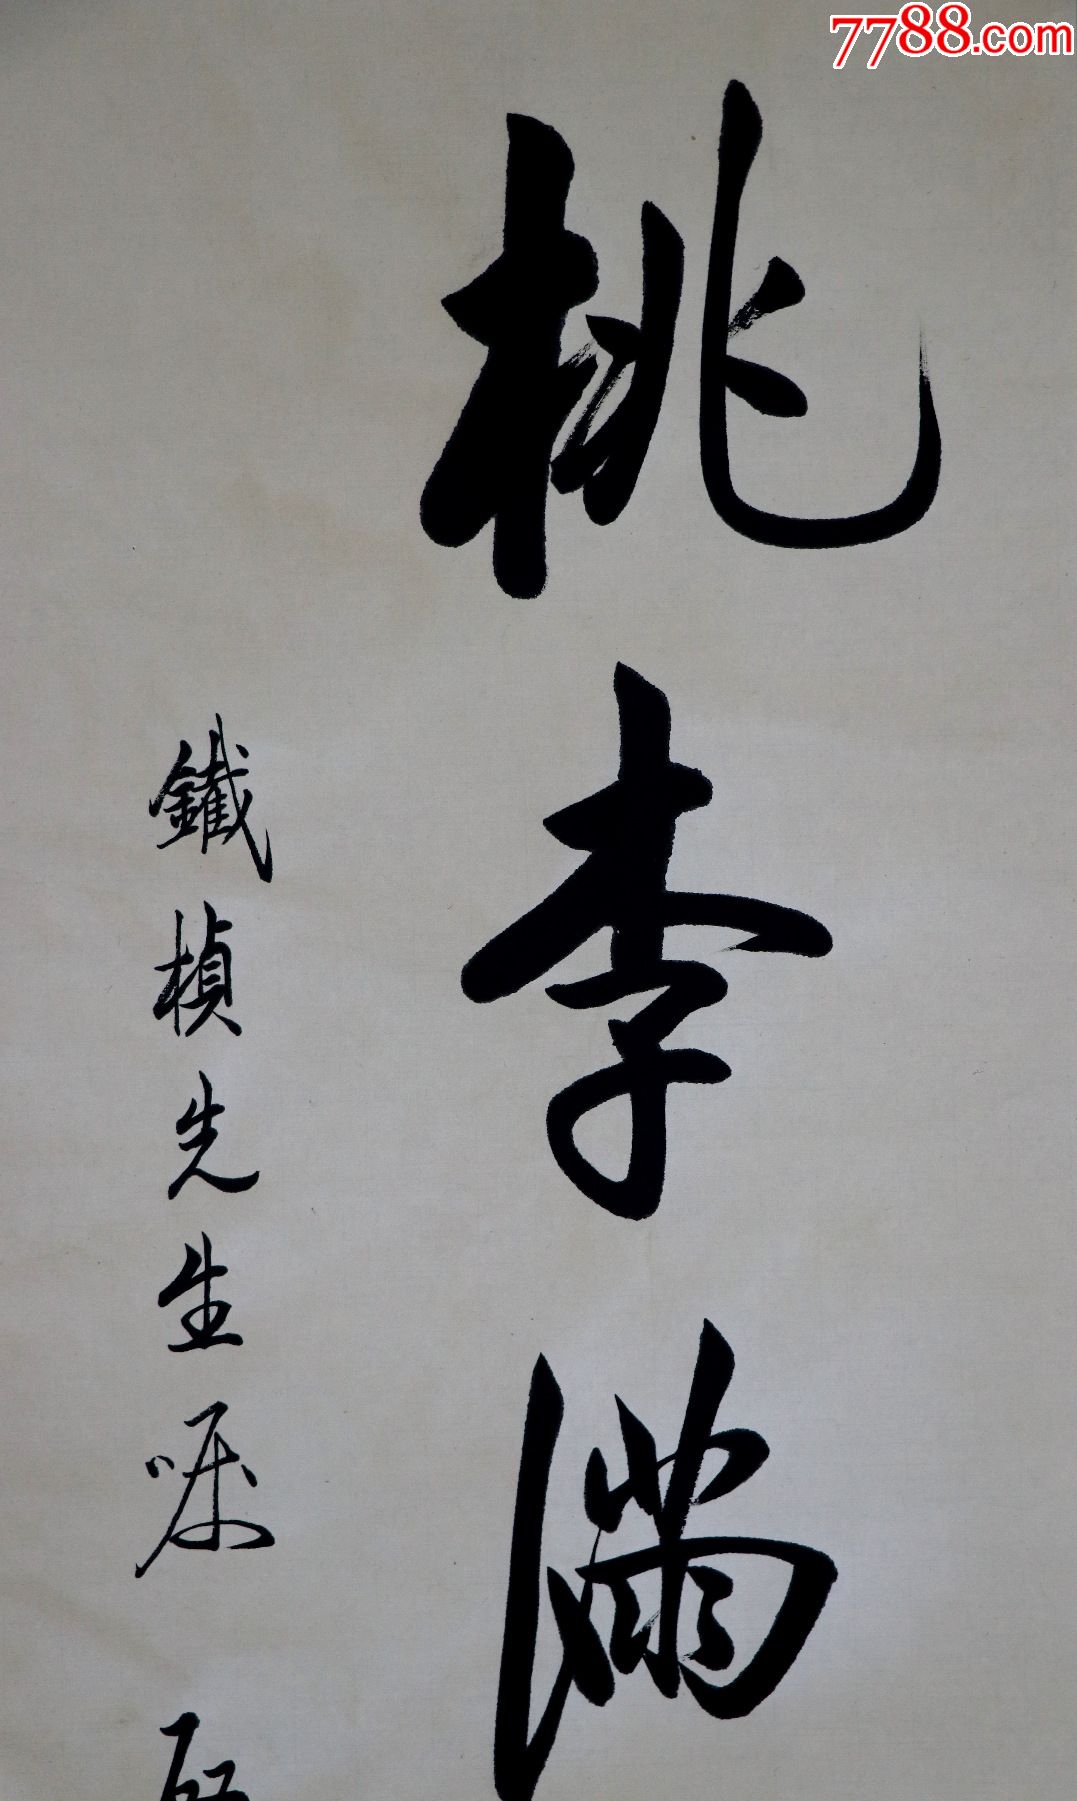 7788.com
桃李满
鐵楨先生嘱